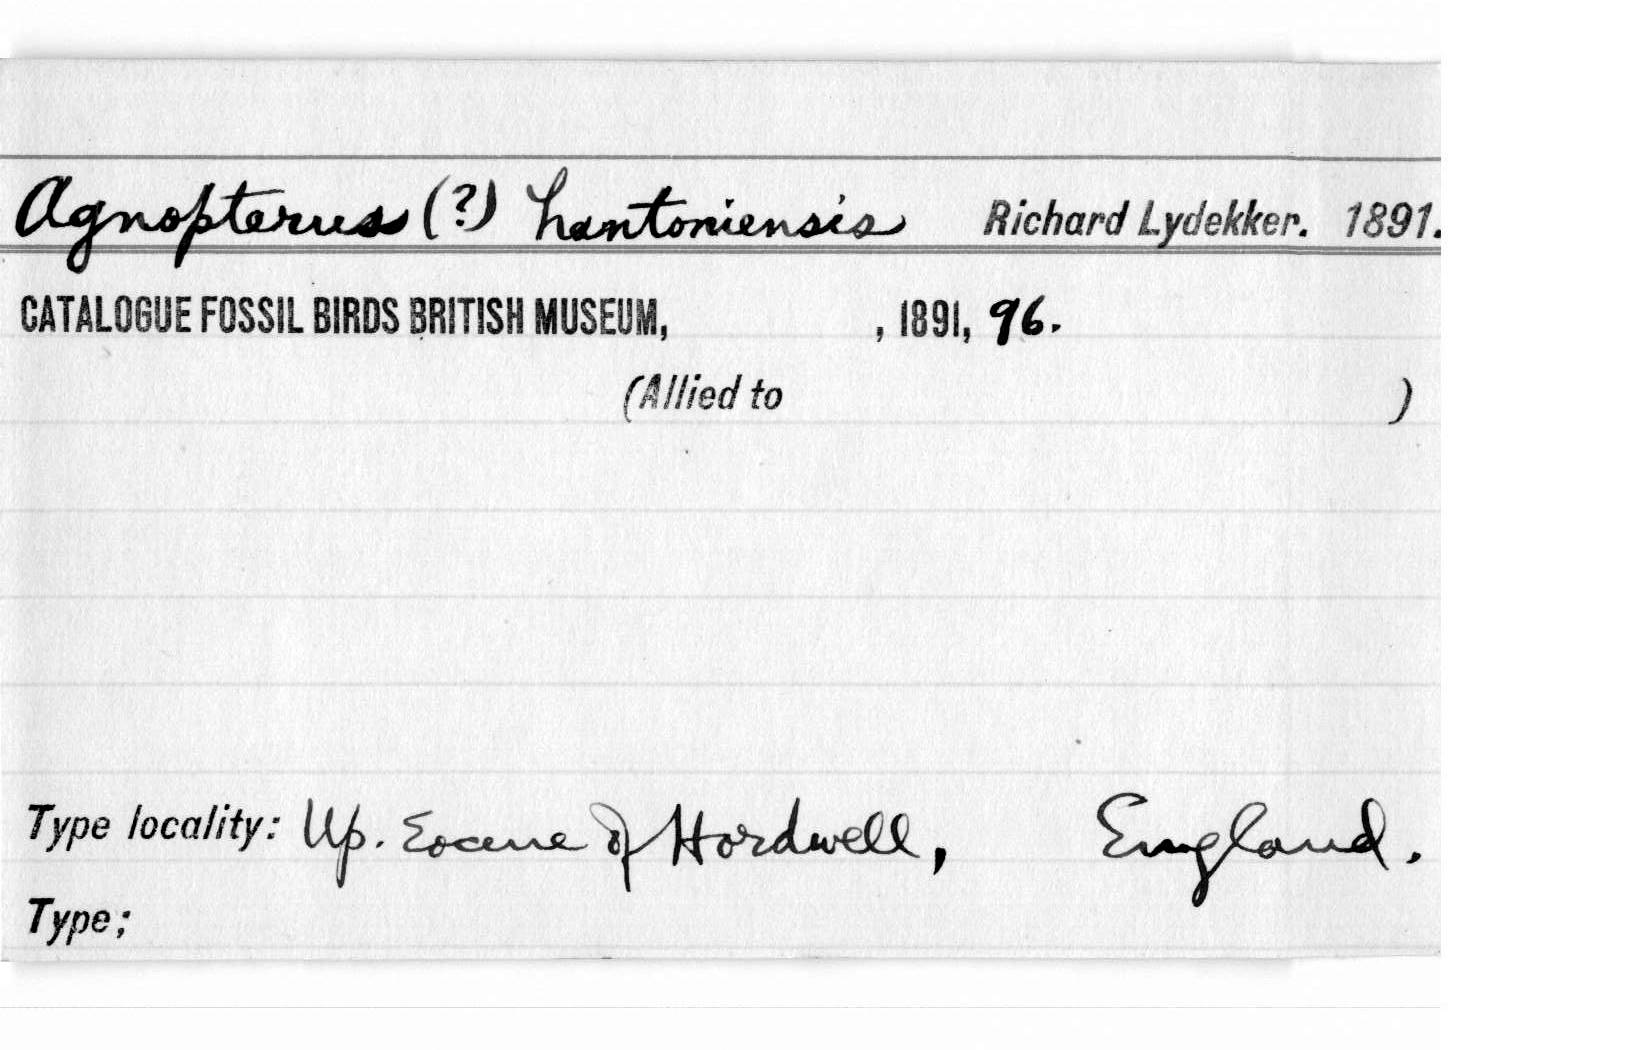 Agnopterus (?) hantoniensis Richard Lydekker. 1891.
CATALOGUE FOSSIL BIRDS BRITISH MUSEUM, , 1891, 96.
(Allied to )
Type locality: Up. Eocene of Hordwell, England.
Type;